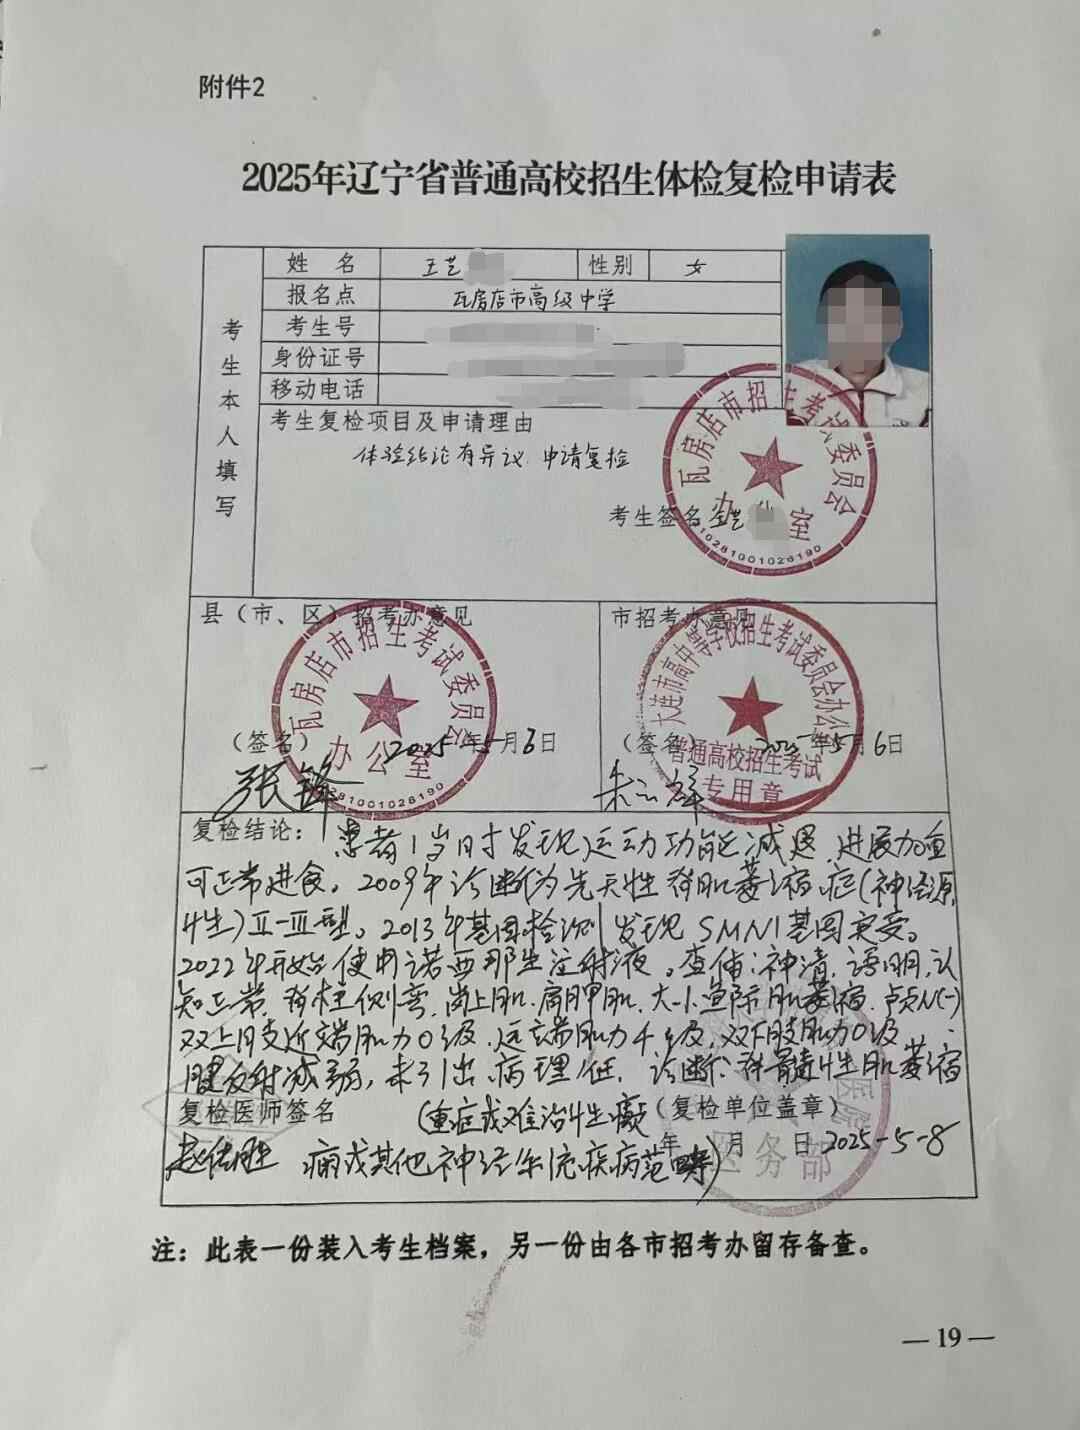 附件2
2025年辽宁省普通高校招生体检复检申请表
考生本人填写
姓名 王艺 性别 女
报名点 瓦房店市高级中学
考生号
身份证号
移动电话
考生复检项目及申请理由
体验结论有异议 申请复检
考生签名 王艺
瓦房店市招生考试委员会
办公室
2102810010261​90
县（市、区）招考办意见
瓦房店市招生考试委员会
办公室
（签名） 2025年5月6日
张锋
市招考办意见
大连市高中等学校招生考试委员会办公室
普通高校招生考试
专用章
（签名） 2025年5月6日
复检结论：患者1岁时发现运动功能减退，进展加重
可正常进食。2009年诊断为先天性脊肌萎缩症（神经源
性）Ⅱ-Ⅲ型。2013年基因检测发现SMN1基因突变。
2022年开始使用诺西那生注射液。查体：神清，语明，认
知正常，脊柱侧弯，岗上肌、肩胛肌、大小鱼际肌萎缩，
双上肢近端肌力0级，远端肌力4级，双下肢肌力0级
腱反射减弱，未引出病理征。诊断：脊髓性肌萎缩
（重症或难治性癫
痫或其他神经系统疾病范畴）
复检医师签名
（复检单位盖章）
年 月 日 2025-5-8
医务部
注：此表一份装入考生档案，另一份由各市招考办留存备查。
— 19 —